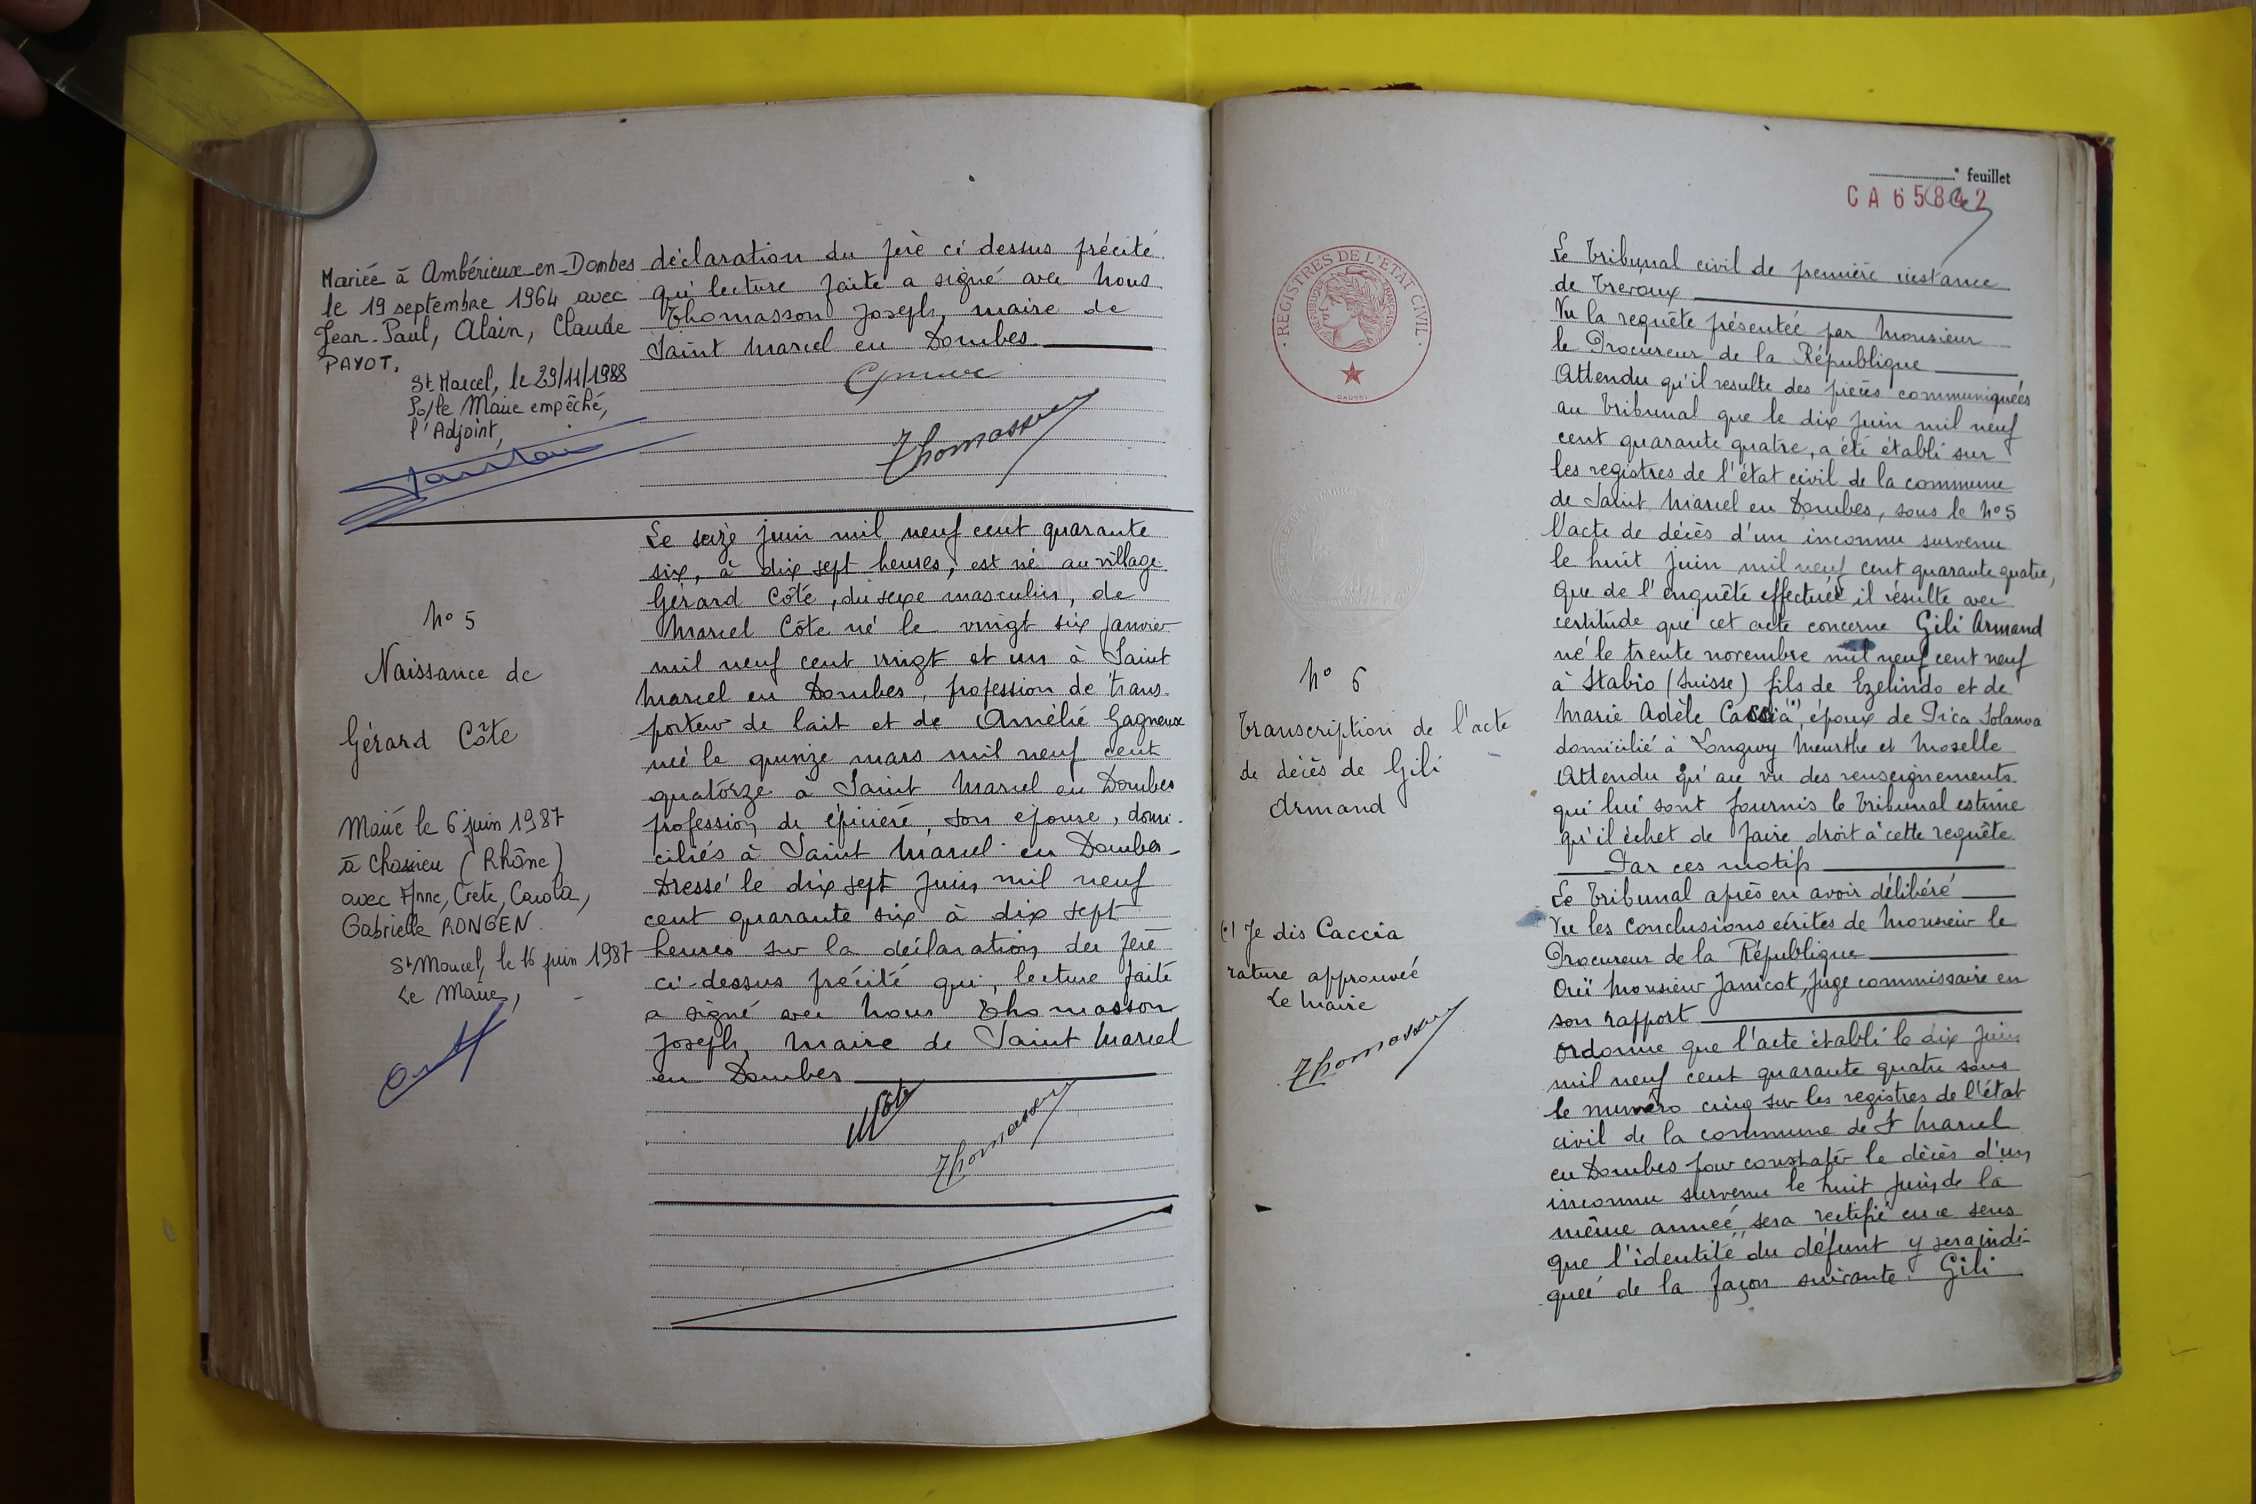 Mariée à Ambérieux-en-Dombes
le 19 septembre 1964 avec
Jean-Paul, Alain, Claude
PAYOT.
St Marcel, le 29/11/1988
Po/le Maire empêché,
l'Adjoint,
déclaration du père ci dessus précité
qui lecture faite a signé avec Nous
Thomasson Joseph, maire de
Saint Marcel en Dombes
Thomasson
N° 5
Naissance de
Gérard Côte
Marié le 6 juin 1987
à Chassieu (Rhône)
avec Anne, Crete, Carola,
Gabrielle RONGEN.
St Marcel, le 16 juin 1987
Le Maire,
Le seize juin mil neuf cent quarante
six, à dix sept heures, est né au village
Gérard Côte, du sexe masculin, de
Marcel Côte né le vingt six janvier
mil neuf cent vingt et un à Saint
Marcel en Dombes, profession de trans-
porteur de lait et de Amélie Gagneux
née le quinze mars mil neuf cent
quatorze à Saint Marcel en Dombes
profession de épicière, son épouse, domi-
ciliés à Saint Marcel en Dombes
Dressé le dix sept Juin mil neuf
cent quarante six à dix sept
heures sur la déclaration du père
ci-dessus précité qui, lecture faite
a signé avec Nous Thomasson
Joseph, Maire de Saint Marcel
en Dombes
Côte
Thomasson
feuillet
CA 65842
REGISTRES DE L'ETAT CIVIL
N° 6
Transcription de l'acte
de décès de Gili
Armand
(1) Je dis Caccia
rature approuvée
Le Maire
Thomasson
Le Tribunal civil de première instance
de Trevoux
Vu la requête présentée par Monsieur
le Procureur de la République
Attendu qu'il resulte des pièces communiquées
au Tribunal que le dix Juin mil neuf
cent quarante quatre, a été établi sur
les registres de l'état civil de la commune
de Saint Marcel en Dombes, sous le N° 5
l'acte de décès d'un inconnu survenu
le huit Juin mil neuf cent quarante quatre,
que de l'enquête effectuée il résulte avec
certitude que cet acte concerne Gili Armand
né le trente novembre mil neuf cent neuf
à Stabio (Suisse) fils de Ezelindo et de
Marie Adèle époux de Pica Solanva
domicilié à Longwy Meurthe et Moselle
Attendu qu'au vu des renseignements
qui lui sont fournis le Tribunal estime
qu'il échet de faire droit à cette requête
Par ces motifs
Le Tribunal après en avoir délibéré
Vu les conclusions écrites de Monsieur le
Procureur de la République
Ouï Monsieur Janicot, Juge commissaire en
son rapport
Ordonne que l'acte établi le dix Juin
mil neuf cent quarante quatre sous
le numéro cinq sur les registres de l'état
civil de la commune de St Marcel
en Dombes pour constater le décès d'un
inconnu survenu le huit Juin de la
même année, sera rectifié en ce sens
que l'identité du défunt y sera indi-
quée de la façon suivante. Gili